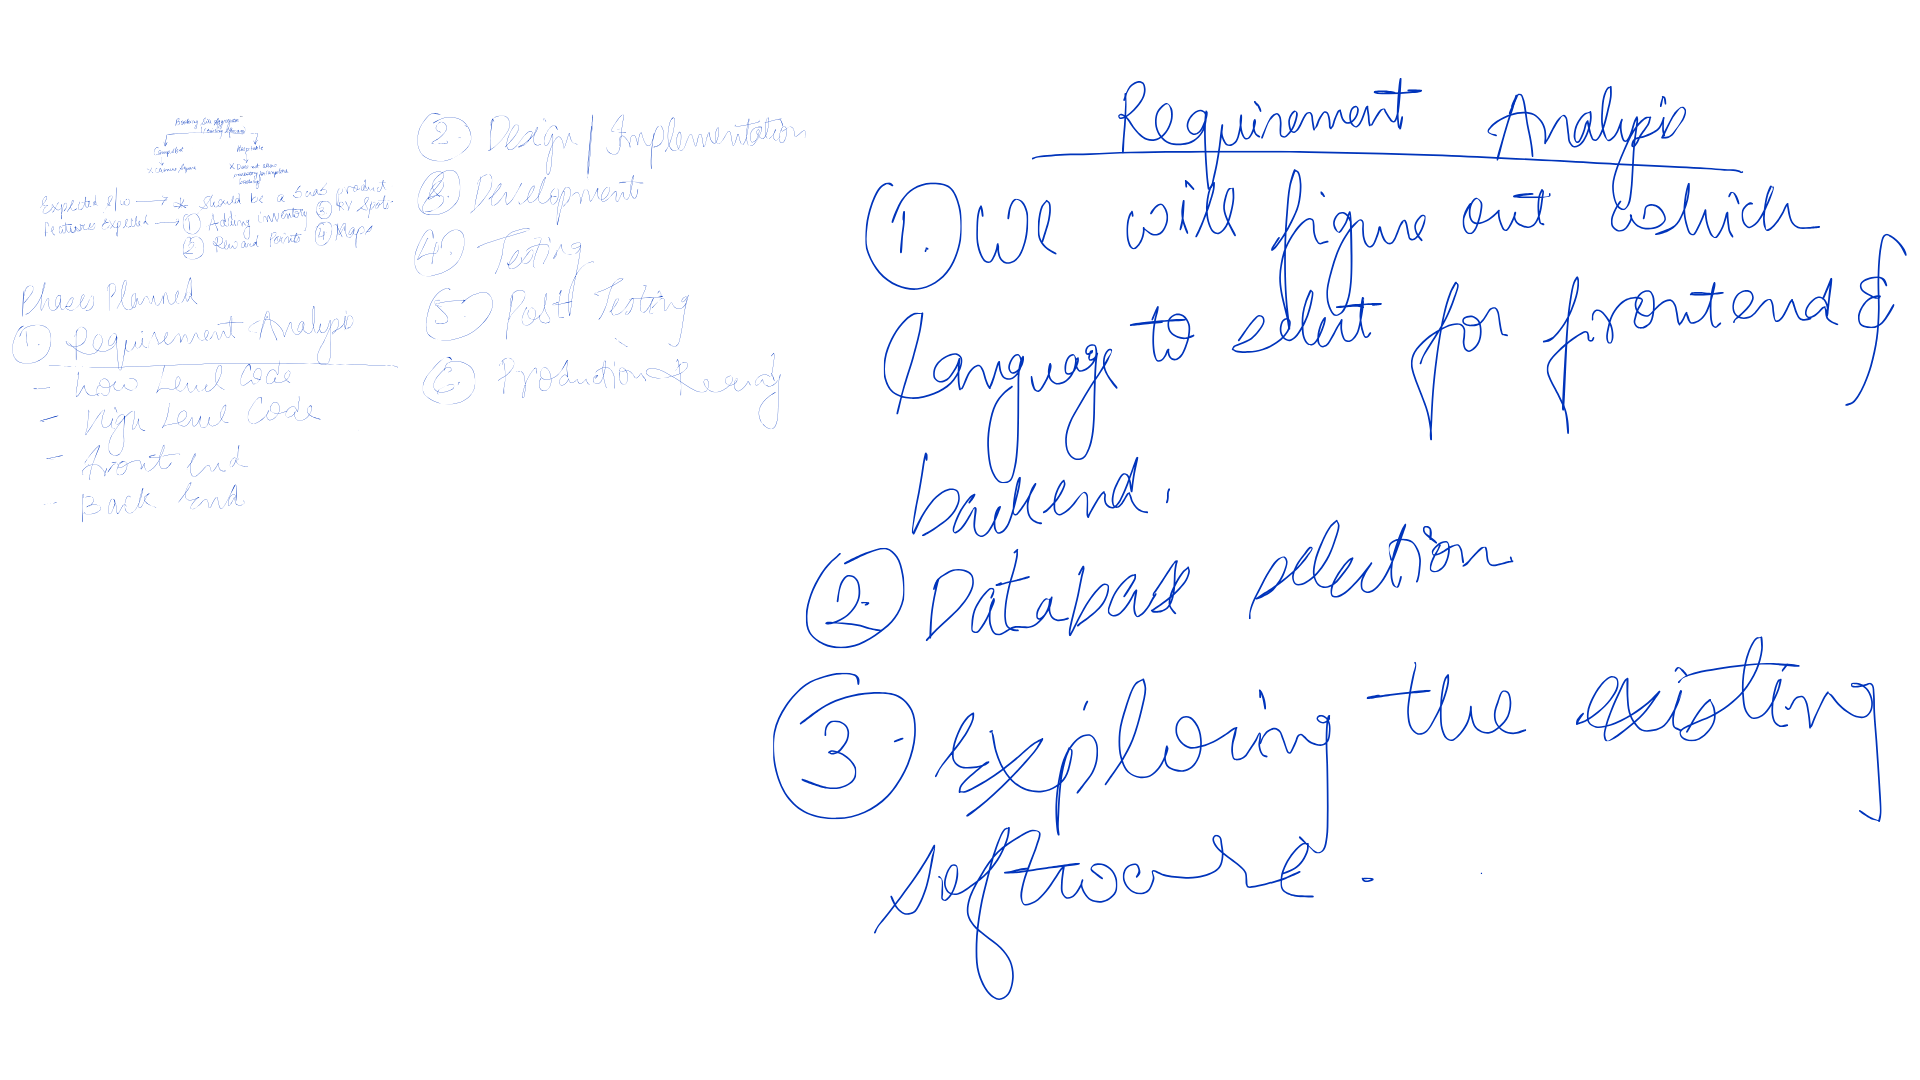 Booking Site Aggregator
(Existing Software)
CampSpot
X Camera Spire
Expected S/w → * Should be a SaaS product
Features Expected → ① Adding inventory ② RV Spots
③ Reward Points ④ Maps
Phases Planned
①. Requirement Analysis
- Low Level Code
- High Level Code
- Front end
- Back End
②. Design / Implementation
③. Development
④. Testing
⑤. Post Testing
⑥. Production Ready
Requirement Analysis
①. We will figure out which
language to select for frontend &
backend.
②. Database selection
③. Exploring the existing
software.